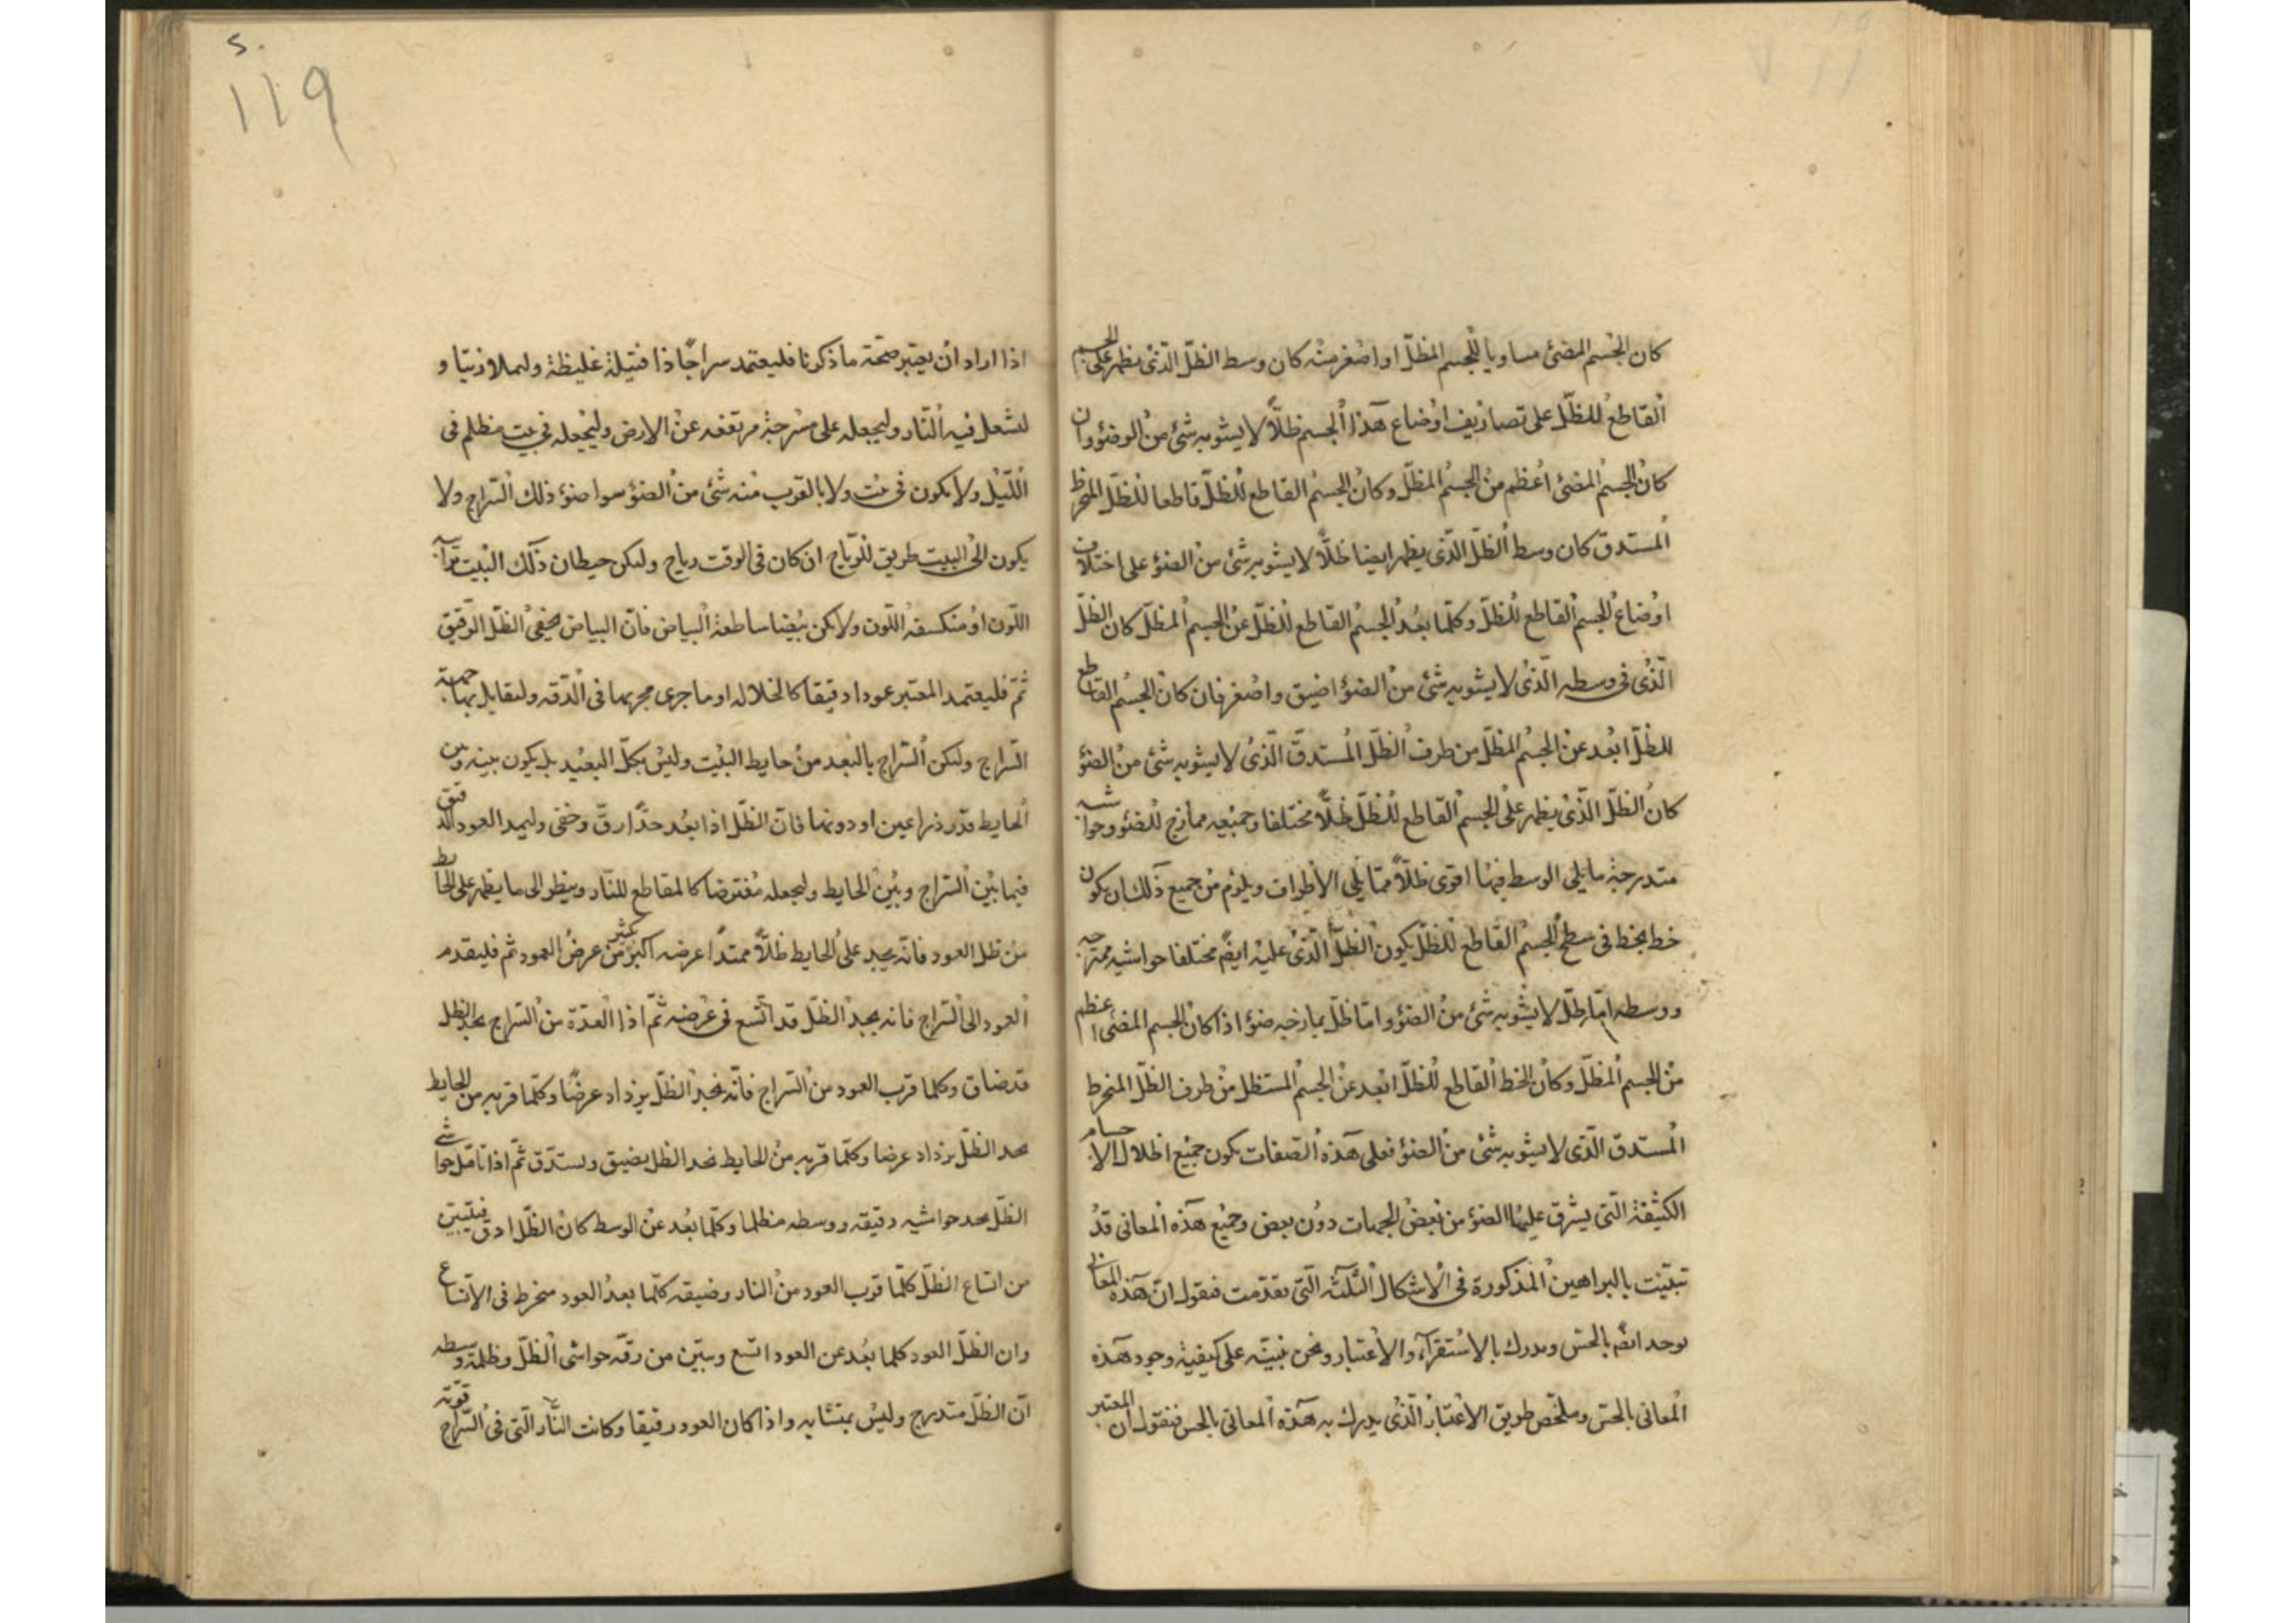 كان الجسم المضئ مساويا للجسم المظلّ او اصغر منه كان وسط الظلّ الّذى يظهر على الجسم
القاطع للظلّ على تصاريف اوضاع هذا الجسم ظلّاً لا يشوبه شئ من الوضئو وان
كان الجسم المضئ اعظم من الجسم المظلّ وكان الجسم القاطع للظلّ قاطعا للظلّ المنخرط
المستدق كان وسط الظلّ الّذى يظهر ايضا ظلّاً لا يشوبه شئ من الضؤ على اختلاف
اوضاع الجسم القاطع للظلّ وكلّما بعُد الجسم القاطع للظلّ عن الجسم المظلّ كان الظلّ
الّذى فى وسطه الّذى لا يشوبه شئ من الضؤ اضيق واصغر فان كان الجسم القاطع
للظلّ ابعد عن الجسم المظلّ من طرف الظلّ المستدقّ الّذى لا يشوبه شئ من الضؤ
كان الظلّ الّذى يظهر على الجسم القاطع للظلّ ظلّاً مختلفا وجميعه ممازج للضئو وحواشيه
متدرجة ما يلى الوسط فيها اقوى ظلّاً ممّا يلى الأطراف ويلزم من جميع ذلك ان يكون
خط يخط فى سطح الجسم القاطع للظلّ يكون الظلّ الّذى عليه ايضً مختلفا حواشيه ممتزجه
ووسطه امّا ظلّ لا يشوبه شئ من الضؤ وامّا ظلّ يمازجه ضؤ اذا كان الجسم المضى اعظم
من الجسم المظلّ وكان الخط القاطع للظلّ ابعد عن الجسم المستظل من طرف الظلّ المنخرط
المستدق الّذى لا يشوبه شئ من الضؤ فعلى هذه الصّفات يكون جميع اظلال الاجسام
الكثيفة الّتى يشرق عليها الضؤ من بعض الجهات دون بعض وجميع هذه المعانى قد
تبيّنت بالبراهين المذكورة فى الاشكال الثّلثه الّتى تقدّمت فنقول انّ هذه المعانى
توجد ايضً بالحسّ وتدرك بالاستقرآء والاعتبار ونحن نبيّنه على كيفية وجود هذه
المعانى بالحسّ وملخّص طريق الاعتبار الّذى يدرك به هذه المعانى بالحس فنقول ان المعتبر
٢٠
١١٩
اذا اراد ان يعتبر صحّة ما ذكرنا فليعتمد سراجًا ذا فتيلة غليظة وليملا زيتا و
لشعل فيه النّار وليجعله على مسرجة مرتفعه عن الارض وليجعله فى بيت مظلم فى
اللّيل ولا يكون فى بيت ولا بالقرب منه شئ من الضؤ سوا ضؤ ذلك السّراج ولا
يكون الى البيت طريق للرّياح ان كان فى الوقت رياح وليكن حيطان ذلك البيت
اللّون او منكسفه اللّون ولا يكن بيضا ساطعة البياض فانّ البياض يخفى الظّل الرّقيق
ثمّ فليعتمد المعتبر عودا دقيقا كالخلاله او ما جرى مجريها فى الدّقه وليقابل بها جهة
السّراج وليكن السّراج بالبعد من حايط البيت وليس بكلّ البعيد بل يكون بينه وبين
الحايط قدر ذراعين او دونها فانّ الظلّ اذا بعُد جدًّا رقّ وخفى وليمد العود الدقيق
فيما بين السّراج وبين الحايط وليجعله مفترضا كالمقاطع للنّار وينظر الى ما يظهر على الحايط
من ظل العود فانّه يجد على الحايط ظلّاً ممتدًا عرضه اكبر بكثير من عرض العمود ثم فليقدم
العود الى السّراج فانه يجد الظلّ قد اتّسع فى عرضه ثمّ اذا ابعدّه من السّراج يجد الظل
قد ضاق وكلما قرب العود من السّراج فانّه يجد الظلّ يزداد عرضًا وكلّما قربه من الحايط
يجد الظلّ يزداد عرضا وكلّما قربه من الحايط نجد الظل يضيق وليستدّق ثمّ اذا تامّل حواشى
الظلّ يجد حواشيه دقيقه ووسطه مظلما وكلّما بعُد عن الوسط كان الظلّ ادق فيتبيّن
من اتساع الظلّ كلّما قرب العود من النار وضيقه كلّما بعد العود منخرط فى الاتّساع
وان الظلّ العود كلما بعُد عن العود اتسع ويبيّن من رقّه حواشى الظلّ وظلمة وسطه
انّ الظلّ متدرج وليس بمتشابه واذا كان العود رقيقا وكانت النّار الّتى فى السّراج قويّه